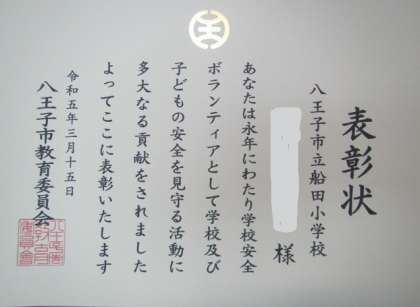 表彰状
八王子市立船田小学校
様
あなたは永年にわたり学校安全
ボランティアとして学校及び
子どもの安全を見守る活動に
多大なる貢献をされました
よってここに表彰いたします
令和五年三月十五日
八王子市教育委員会